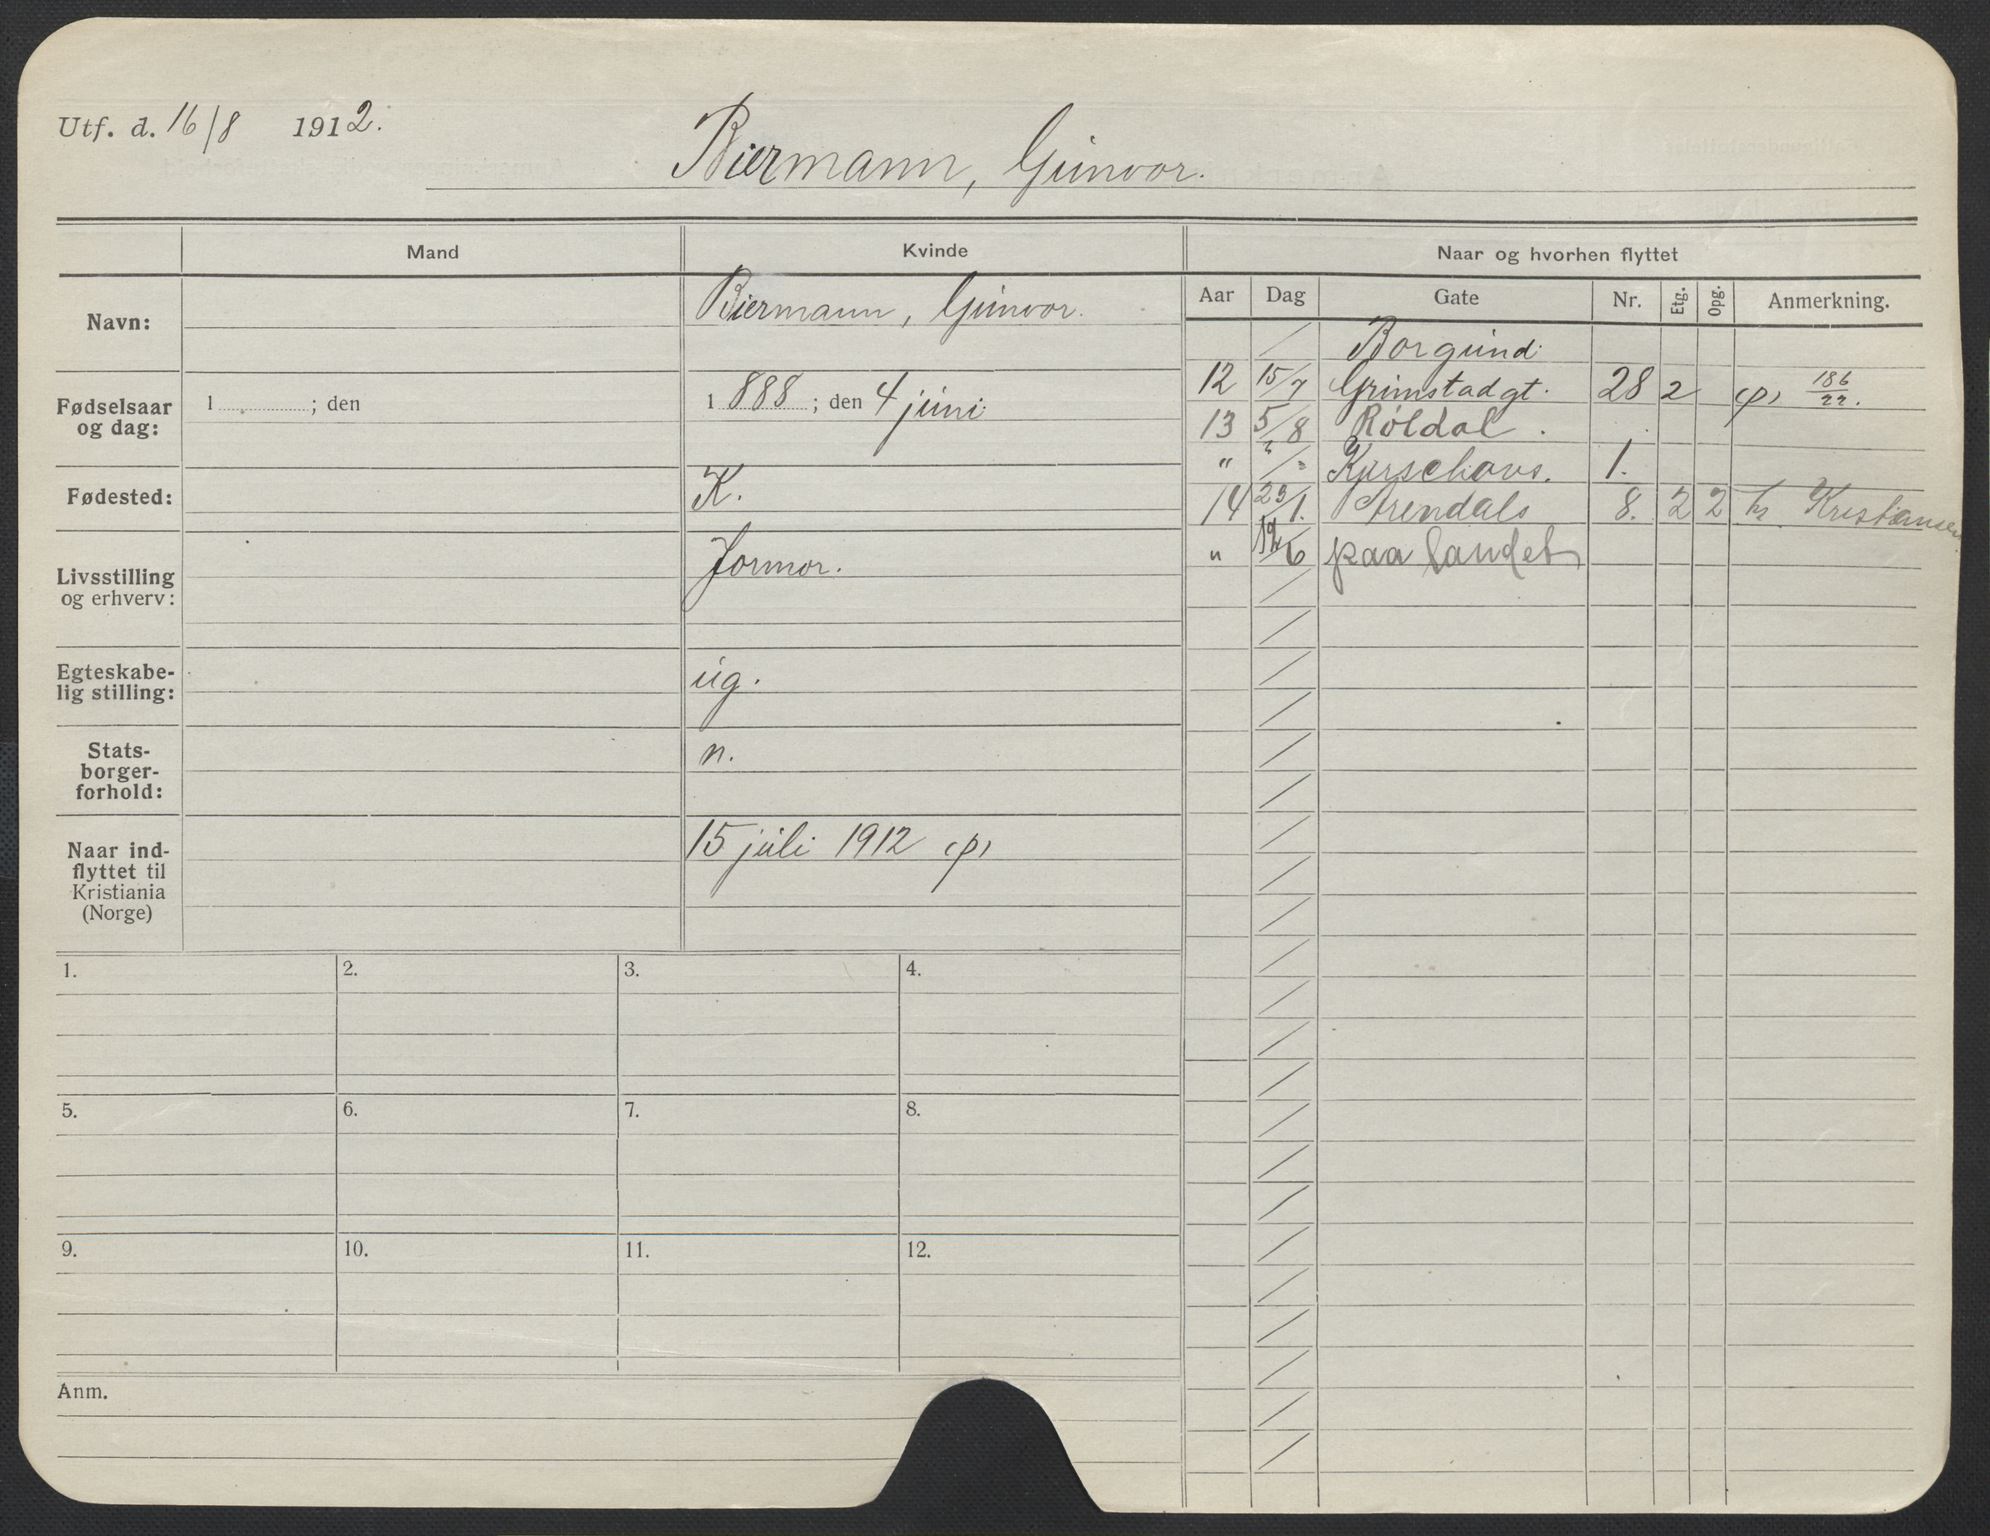 Utf. d. 16/8 1912.
Biermann, Gunvor.
Mand Kvinde Naar og hvorhen flyttet
Aar Dag Gate Nr. Etg. Opg. Anmerkning.
Navn: Biermann, Gunvor.
Fødselsaar og dag: 1 ; den 1 888 ; den 4 juni
Fødested: K.
Livsstilling og erhverv: Jormor.
Egteskabe-
lig stilling: ug.
Stats-
borger-
forhold: n.
Naar ind-
flyttet til
Kristiania
(Norge) 15 juli 1912 (p)
Borgund
12 15/7 Grimstadgt. 28 2 (p) 186/22.
13 5/8 Røldal.
" Kjerschows. 1.
14 23/1. Arendals 8. 2 2 hr. Kristiansen
" 19/6 paa landet
1. 2. 3. 4.
5. 6. 7. 8.
9. 10. 11. 12.
Anm.